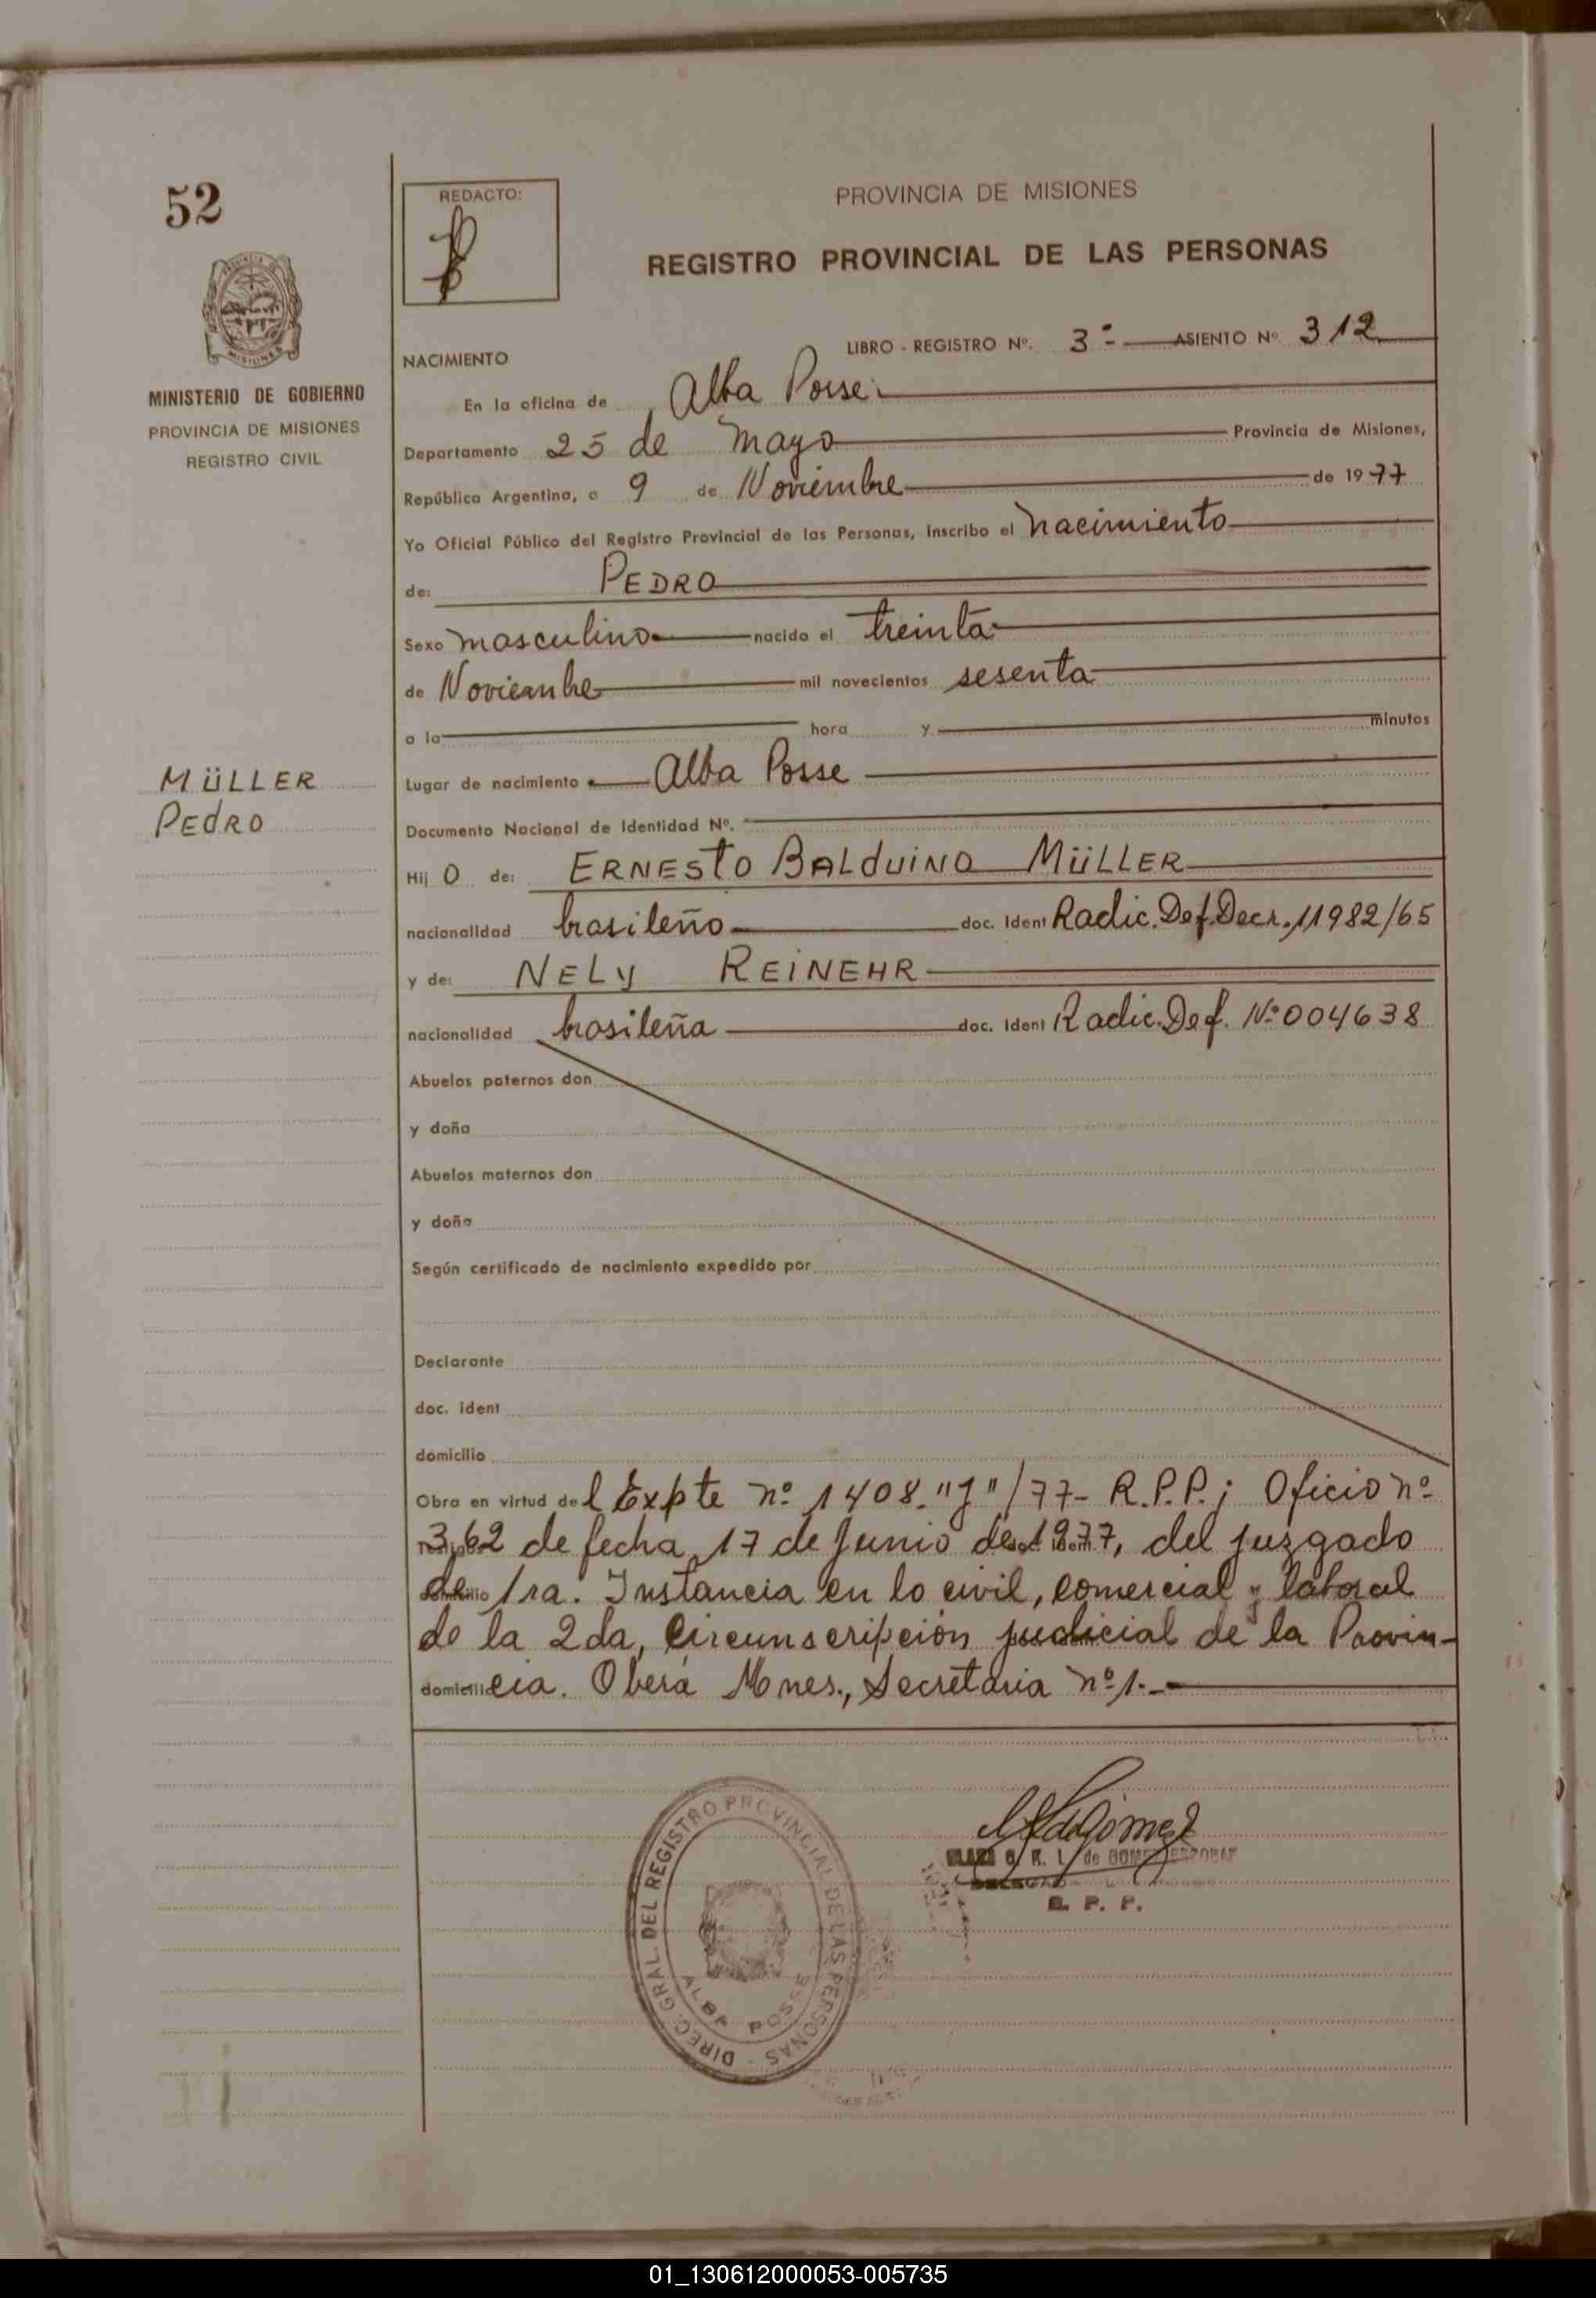 52
REDACTO:
PROVINCIA DE MISIONES
REGISTRO PROVINCIAL DE LAS PERSONAS
MISIONES
MINISTERIO DE GOBIERNO
PROVINCIA DE MISIONES
REGISTRO CIVIL
LIBRO - REGISTRO Nº. 3º- ASIENTO Nº 312
NACIMIENTO
En la oficina de Alba Posse
Departamento 25 de Mayo Provincia de Misiones,
República Argentina, a 9 de Noviembre de 1977
Yo Oficial Público del Registro Provincial de las Personas, inscribo el nacimiento
de: PEDRO
Sexo masculino nacido el treinta
de Noviembre mil novecientos sesenta
a la hora y minutos
Lugar de nacimiento Alba Posse
MÜLLER
PEdRO
Documento Nacional de Identidad Nº.
Hij O de: ERNESTO BALduiNO MÜLLER
nacionalidad brasileño doc. Ident Radic. Def. Decr. 11982/65
y de: NELY REINEHR
nacionalidad brasileña doc. Ident Radic. Def. Nº 004638
Abuelos paternos don
y doña
Abuelos maternos don
y doña
Según certificado de nacimiento expedido por
Declarante
doc. ident
domicilio
Obra en virtud del Expte nº 1408."J"/77- R.P.P.; Oficio nº
362 de fecha 17 de Junio de 1977, del juzgado
de 1ra. Instancia en lo civil, comercial y laboral
de la 2da, Circunscripción judicial de la Provin-
domicilio cia. Oberá Mnes., Secretaria nº1.-
DIREC. GRAL. DEL REGISTRO PROVINCIAL DE LAS PERSONAS -
ALBA POSSE
G. R. I. de GOMEZ
R. P. P.
01_130612000053-005735